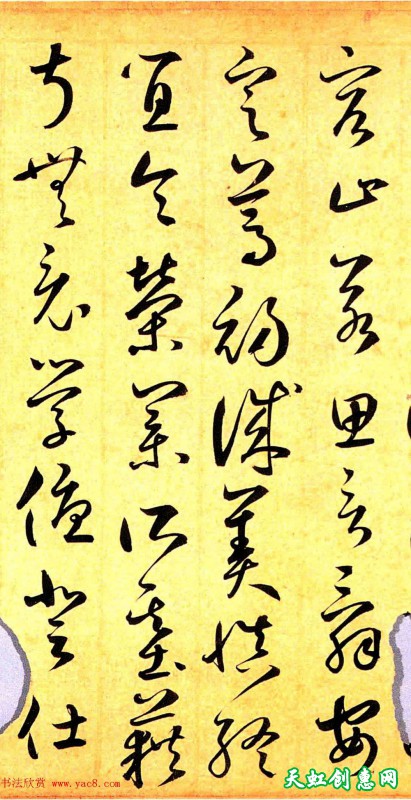 容止若思言辭安
定篤初誠美慎終
宜令榮業所基藉
甚無竟學優登仕
书法欣赏 www.yac8.com
天虹创惠网